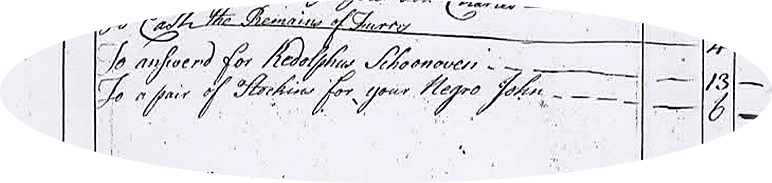 To Cash the Remains of 4
To answerd for Redolphus Schoonoven — 13 —
To a pair of Stockins for your Negro John — 6 —